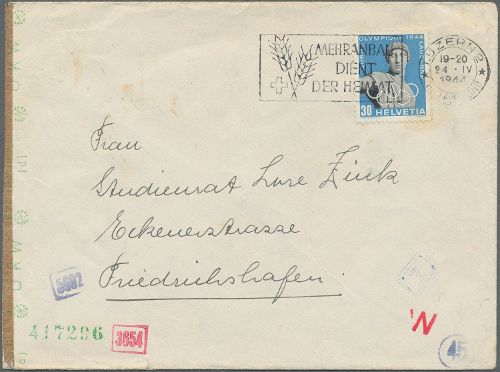 MEHRANBAU
DIENT
DER HEIMAT
OLYMPIQUE 1944
30 HELVETIA
LUZERN 2
19-20
24. IV
1944
Frau
Studienrat Lore Zink
Eckenerstrasse
Friedrichshafen.
5682
417296
3654
N
45
OKW
OKW
OKW